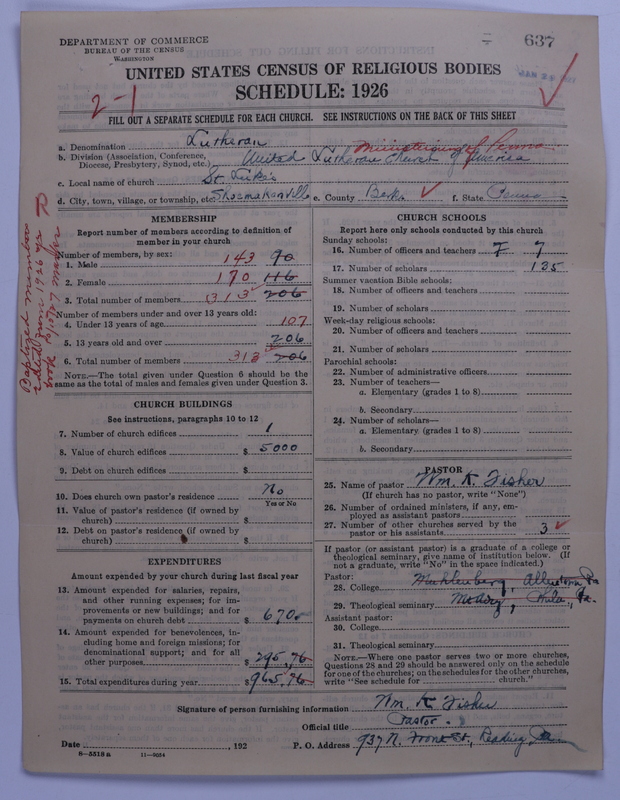 DEPARTMENT OF COMMERCE
BUREAU OF THE CENSUS
WASHINGTON
637
UNITED STATES CENSUS OF RELIGIOUS BODIES
SCHEDULE: 1926
2-1
FILL OUT A SEPARATE SCHEDULE FOR EACH CHURCH. SEE INSTRUCTIONS ON THE BACK OF THIS SHEET
a. Denomination Lutheran
Ministerium of Penna
b. Division (Association, Conference, Diocese, Presbytery, Synod, etc.) United Lutheran Church of America
c. Local name of church St. Luke's
d. City, town, village, or township, etc. Shoemakersville e. County Berks f. State Penna
MEMBERSHIP
Report number of members according to definition of
member in your church
Number of members, by sex:
1. Male 143 90
2. Female 170 116
3. Total number of members 313 206
Number of members under and over 13 years old:
4. Under 13 years of age 107
5. 13 years old and over 206
6. Total number of members 313 206
NOTE.—The total given under Question 6 should be the
same as the total of males and females given under Question 3.
Baptized members
from 1926 yr
book
CHURCH BUILDINGS
See instructions, paragraphs 10 to 12
7. Number of church edifices 1
8. Value of church edifices $ 5000
9. Debt on church edifices $
10. Does church own pastor's residence No
Yes or No
11. Value of pastor's residence (if owned by
church) $
12. Debt on pastor's residence (if owned by
church) $
EXPENDITURES
Amount expended by your church during last fiscal year
13. Amount expended for salaries, repairs,
and other running expenses; for im-
provements or new buildings; and for
payments on church debt $ 670
14. Amount expended for benevolences, in-
cluding home and foreign missions; for
denominational support; and for all
other purposes $ 295.76
15. Total expenditures during year $ 965.76
CHURCH SCHOOLS
Report here only schools conducted by this church
Sunday schools:
16. Number of officers and teachers 7 7
17. Number of scholars 125
Summer vacation Bible schools:
18. Number of officers and teachers
19. Number of scholars
Week-day religious schools:
20. Number of officers and teachers
21. Number of scholars
Parochial schools:
22. Number of administrative officers
23. Number of teachers—
a. Elementary (grades 1 to 8)
b. Secondary
24. Number of scholars—
a. Elementary (grades 1 to 8)
b. Secondary
PASTOR
25. Name of pastor Wm. K. Fisher
(If church has no pastor, write "None")
26. Number of ordained ministers, if any, em-
ployed as assistant pastors
27. Number of other churches served by the
pastor or his assistants 3
If pastor (or assistant pastor) is a graduate of a college or
theological seminary, give name of institution below. (If
not a graduate, write "No" in the space indicated.)
Pastor:
28. College Muhlenberg, Allentown Pa
29. Theological seminary Mt Airy, Phila., Pa.
Assistant pastor:
30. College
31. Theological seminary
NOTE.—Where one pastor serves two or more churches,
Questions 28 and 29 should be answered only on the schedule
for one of the churches; on the schedules for the other churches,
write "See schedule for church."
Signature of person furnishing information Wm. K. Fisher
Official title Pastor.
Date , 192 P. O. Address 937 N. Front St., Reading
8—5518 a 11—9054